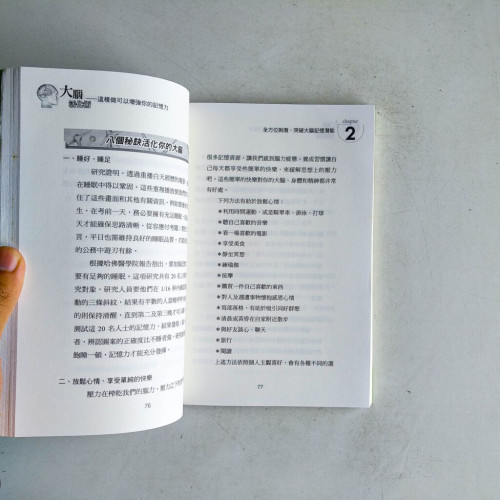 大腦
這樣做可以增強你的記憶力
八個秘訣活化你的大腦
一、睡好、睡足
研究證明，透過重播白天經歷的
在睡眠中得以鞏固。這些重複播放
住了這些畫面和其他有關資訊。例如
生，在考前一天，務必要擁有充足睡眠
天才能確保思路清晰，從容應付考題
言，平日也需維持良好的睡眠品質，
的公務中遊刃有餘。
根據哈佛醫學院報告指出，要加
要有足夠的睡眠。這項研究共有20名
究對象。研究人員要他們在1/16秒內
動的三條斜紋，結果有半數的人當晚
的則保持清醒，直到第二及第三晚才可
測試這20名人士的記憶力，結果發現，
者，辨認圖案的正確度比不睡者
飽睡一頓，記憶力才能充分發揮。
二、放鬆心情、享受單純的快樂
壓力在榨乾我們的腦力，壓力之下
76
全方位刺激，突破大腦記憶潛能
chapter
2
很多記憶資源，讓我們感到腦力疲憊。養成習慣讓自
己每天都享受些簡單的快樂，來緩解思想上的壓力
吧。這些簡單的快樂對你的大腦、身體和精神都非常
有好處。
下列方法有給於放鬆心情：
＊利用時間運動，或是騎單車、游泳、打球
＊聽自己喜歡的音樂
＊看一場喜歡的電影
＊享受美食
＊靜坐冥想
＊練瑜伽
＊按摩
＊購買一件自己喜歡的東西
＊對人及週遭事物懷抱感恩心情
＊寫部落格，有給於吸引同好群慈
＊清晨或黃昏在自家附近散步
＊與好友談心、聊天
＊旅行
＊閱讀
上述方法依照個人主觀喜好，會有各種不同的選
77